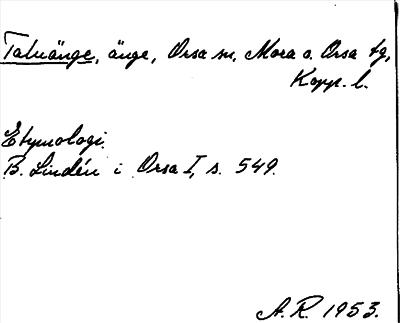 Taluänge, änge, Orsa sn, Mora o. Orsa tg,
Kopp. l.
Etymologi.
B. Lindén i Orsa I, s. 549.
A. R. 1953.